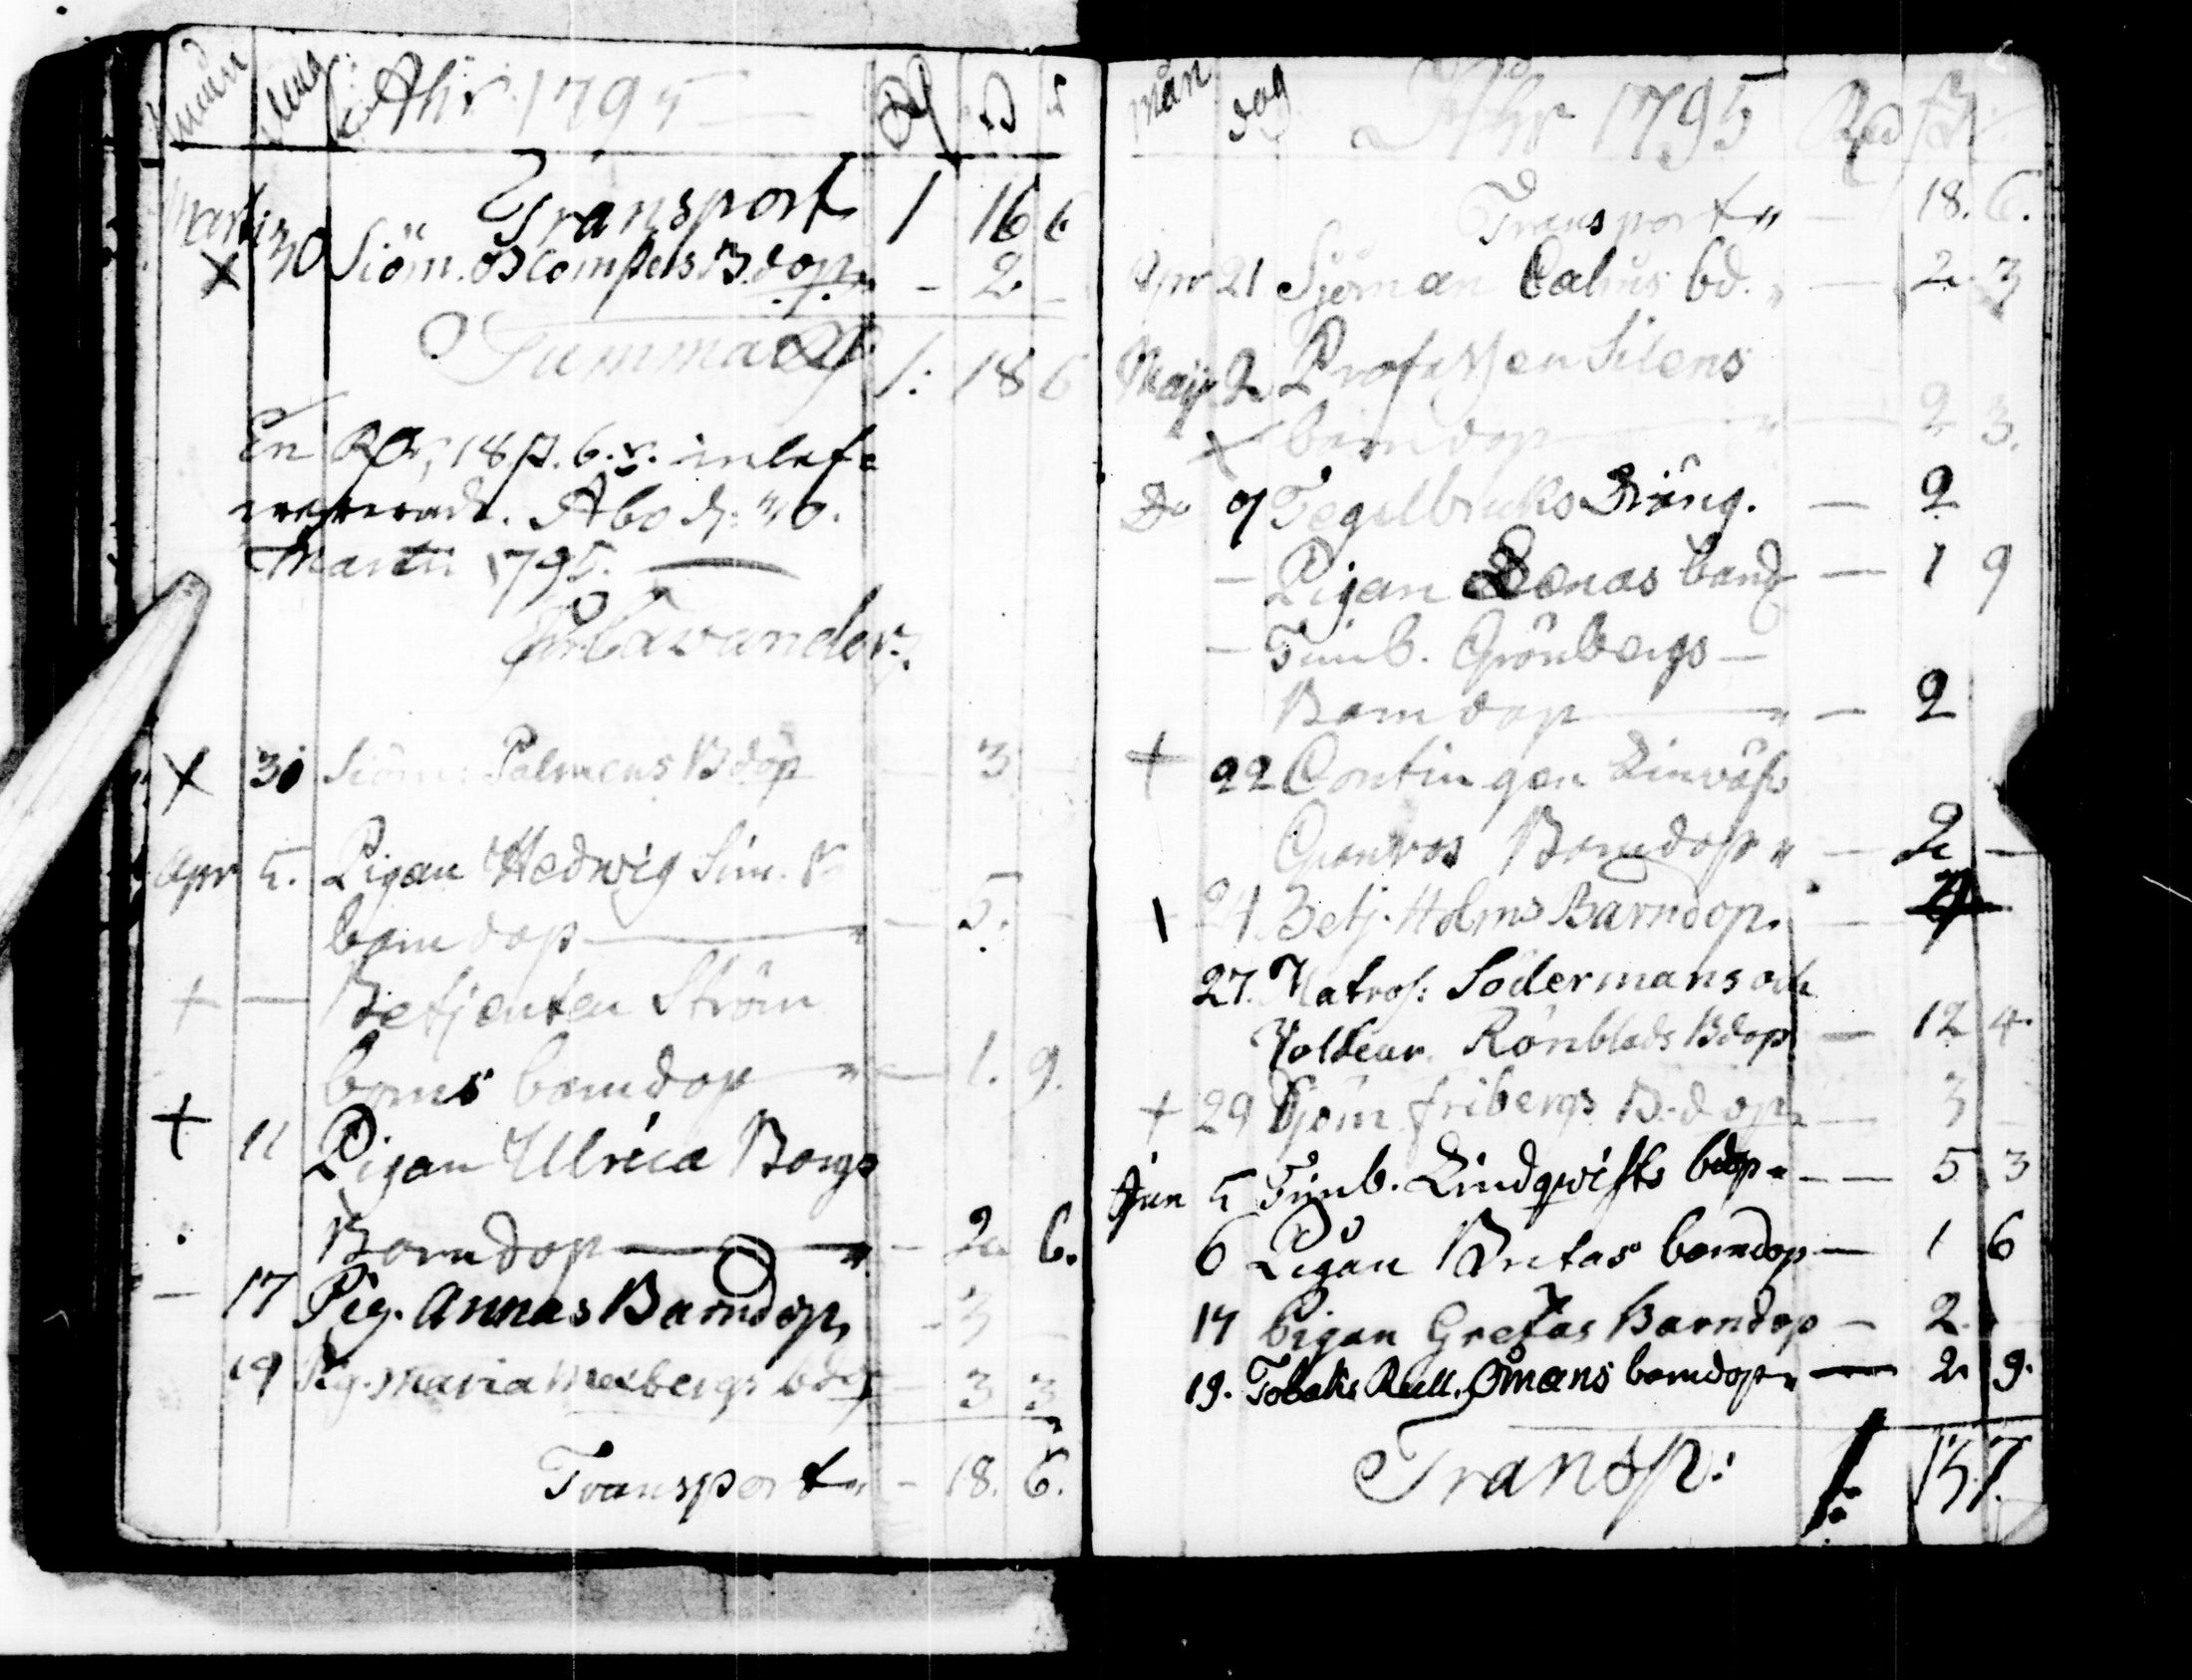 mån dag Åhr 1795 Rd ß r
Transport 1 16 6
Marti 30 Siöm. Blompels Bdop - 2 -
Summa Rd 1: 18 6
En Rd, 18 ß. 6. r. inlef-
vererade. Åbo d:
Martii 1795.
X 30 Siöm: Palmens Bdop 3
Apr 5. Pigan Hedwig Sim.
barndop — 5.
+ — Betjenten Ström
boms barndop — 1. 9.
+ 11 Pigan Ulrica Bergs
Barndop — 2 6.
— 17 Pig. Annas Barndop, - 3 -
19 Pig. Maria bdop 3 3
Transport - 18. 6.
mån dag Åhr 1795 Rd ß r
Transport " — 18. 6.
Apr 21 Sjöman Calius bd. " — 2. 3
Maji 2 Professen Silens
X barndop " — 2 3.
Do 9 Tegelbruks Dräng. — 2
— Pigan Lenas barnd — 1 9
— Timb. Grönbergs —
Barndop " — 2
+ 22 Contingen
Granros Barndop " — 2 —
24. Betj. Holms Barndop. —
27. Matros: Södermans och
Voltear. Rönblads Bdop — 12 4.
+ 29 Sjöm fribergs B.dop — 3 -
Jun 5 Timb. Lindqwists bdop " — 5 3
6 Pigan Britas barndop — 1 6
14 Pigan Gretas Barndop — 2.
19. Tobaks Rull. Ömans barndop " — 2 9.
Transp: 1: 13 7.